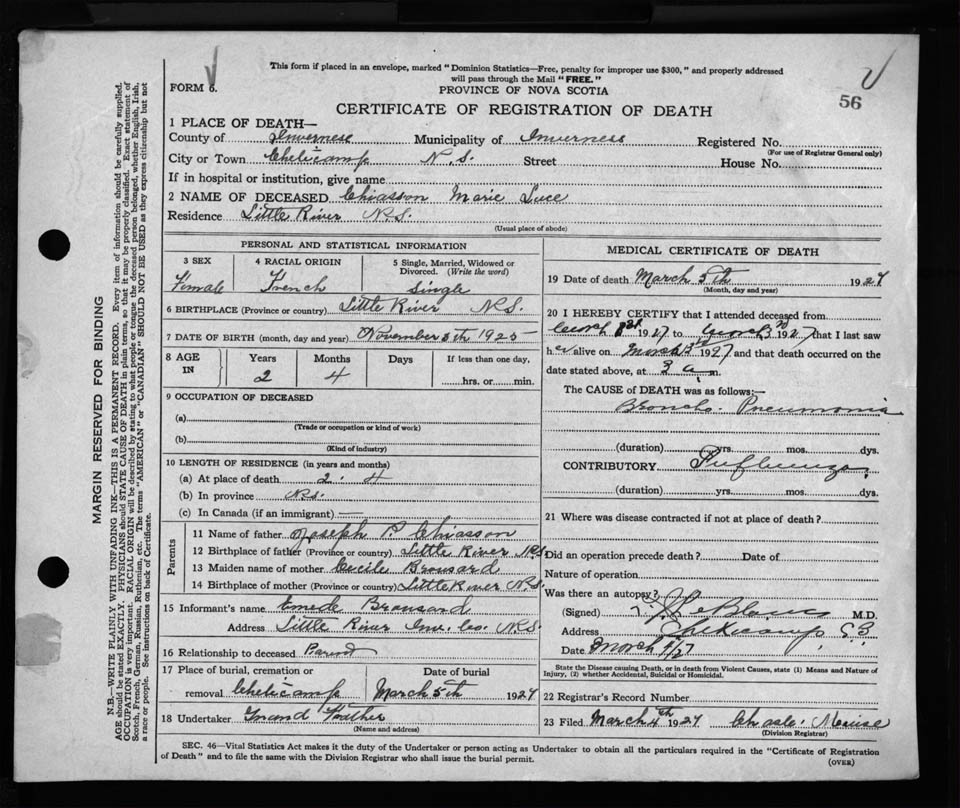 This form if placed in an envelope, marked "Dominion Statistics—Free, penalty for improper use $300," and properly addressed
will pass through the Mail "FREE."
FORM 6.
PROVINCE OF NOVA SCOTIA
56
CERTIFICATE OF REGISTRATION OF DEATH
1 PLACE OF DEATH—
County of Inverness Municipality of Inverness Registered No.
(For use of Registrar General only)
City or Town Cheticamp N.S. Street House No.
If in hospital or institution, give name
2 NAME OF DECEASED Chiasson Marie Luce
Residence Little River N.S.
(Usual place of abode)
PERSONAL AND STATISTICAL INFORMATION
3 SEX 4 RACIAL ORIGIN 5 Single, Married, Widowed or Divorced. (Write the word)
Female French Single
6 BIRTHPLACE (Province or country) Little River N.S.
7 DATE OF BIRTH (month, day and year) November 5th 1925
8 AGE IN Years Months Days If less than one day,
2 4 hrs. or min.
9 OCCUPATION OF DECEASED
(a)
(Trade or occupation or kind of work)
(b)
(Kind of industry)
10 LENGTH OF RESIDENCE (in years and months)
(a) At place of death 2. 4
(b) In province N.S.
(c) In Canada (if an immigrant) —
Parents
11 Name of father Joseph P. Chiasson
12 Birthplace of father (Province or country) Little River N.S.
13 Maiden name of mother Cecile Brousard
14 Birthplace of mother (Province or country) Little River N.S.
15 Informant's name Emede Brousard
Address Little River Inv. Co. N.S.
16 Relationship to deceased Parend
17 Place of burial, cremation or Date of burial
removal Cheticamp March 5th 1927
18 Undertaker Grand Father
(Name and address)
MEDICAL CERTIFICATE OF DEATH
19 Date of death March 5th 1927
(Month, day and year)
20 I HEREBY CERTIFY that I attended deceased from
1927 to 1927 that I last saw
her alive on March 3 1927 and that death occurred on the
date stated above, at 3 a. m.
The CAUSE of DEATH was as follows:—
Broncho. Pneumonia
(duration) yrs. mos. dys.
CONTRIBUTORY Influenza
(duration) yrs. mos. dys.
21 Where was disease contracted if not at place of death?
Did an operation precede death? Date of
Nature of operation
Was there an autopsy?
(Signed) LeBlanc M.D.
Address Cheticamp C.B.
Date March 4/27
State the Disease causing Death, or in death from Violent Causes, state (1) Means and Nature of
Injury, (2) whether Accidental, Suicidal or Homicidal.
22 Registrar's Record Number
23 Filed March 4th 1927
(Division Registrar)
SEC. 46—Vital Statistics Act makes it the duty of the Undertaker or person acting as Undertaker to obtain all the particulars required in the "Certificate of Registration
of Death" and to file the same with the Division Registrar who shall issue the burial permit.
(OVER)
MARGIN RESERVED FOR BINDING
N.B.—WRITE PLAINLY WITH UNFADING INK—THIS IS A PERMANENT RECORD. Every item of information should be carefully supplied.
AGE should be stated EXACTLY. PHYSICIANS should STATE CAUSE OF DEATH in plain terms, so that it may be properly classified. Exact statement of
OCCUPATION is very important. RACIAL ORIGIN will be described by stating to what people or tongue the deceased person belonged, whether English, Irish,
Scotch, French, German, Russian, Ruthenian, etc. The terms "AMERICAN" or "CANADIAN" SHOULD NOT BE USED as they express citizenship but not
a race or people. See instructions on back of Certificate.